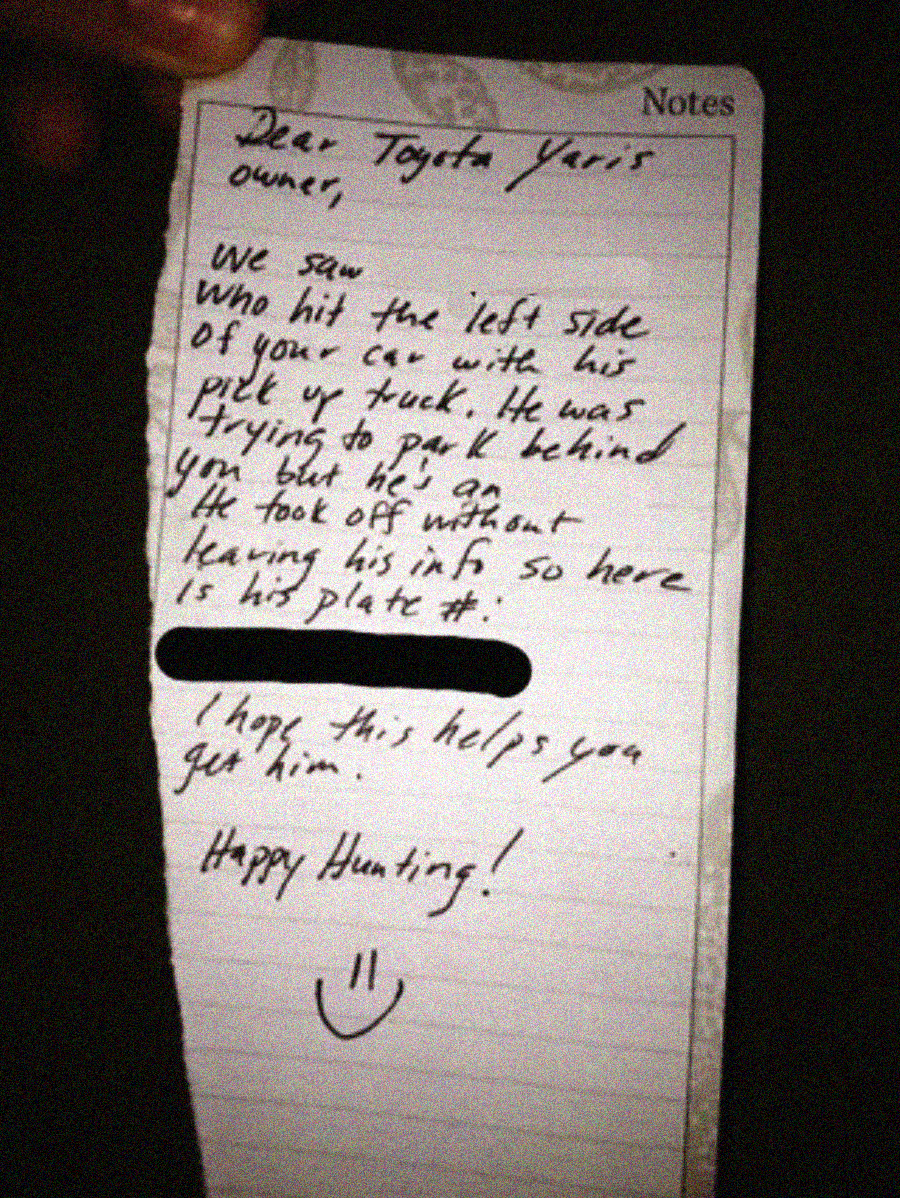 Notes
Dear Toyota Yaris
owner,
We saw
who hit the left side
of your car with his
pick up truck. He was
trying to park behind
you but he's an
He took off without
leaving his info so here
is his plate #:
I hope this helps you
get him.
Happy Hunting!